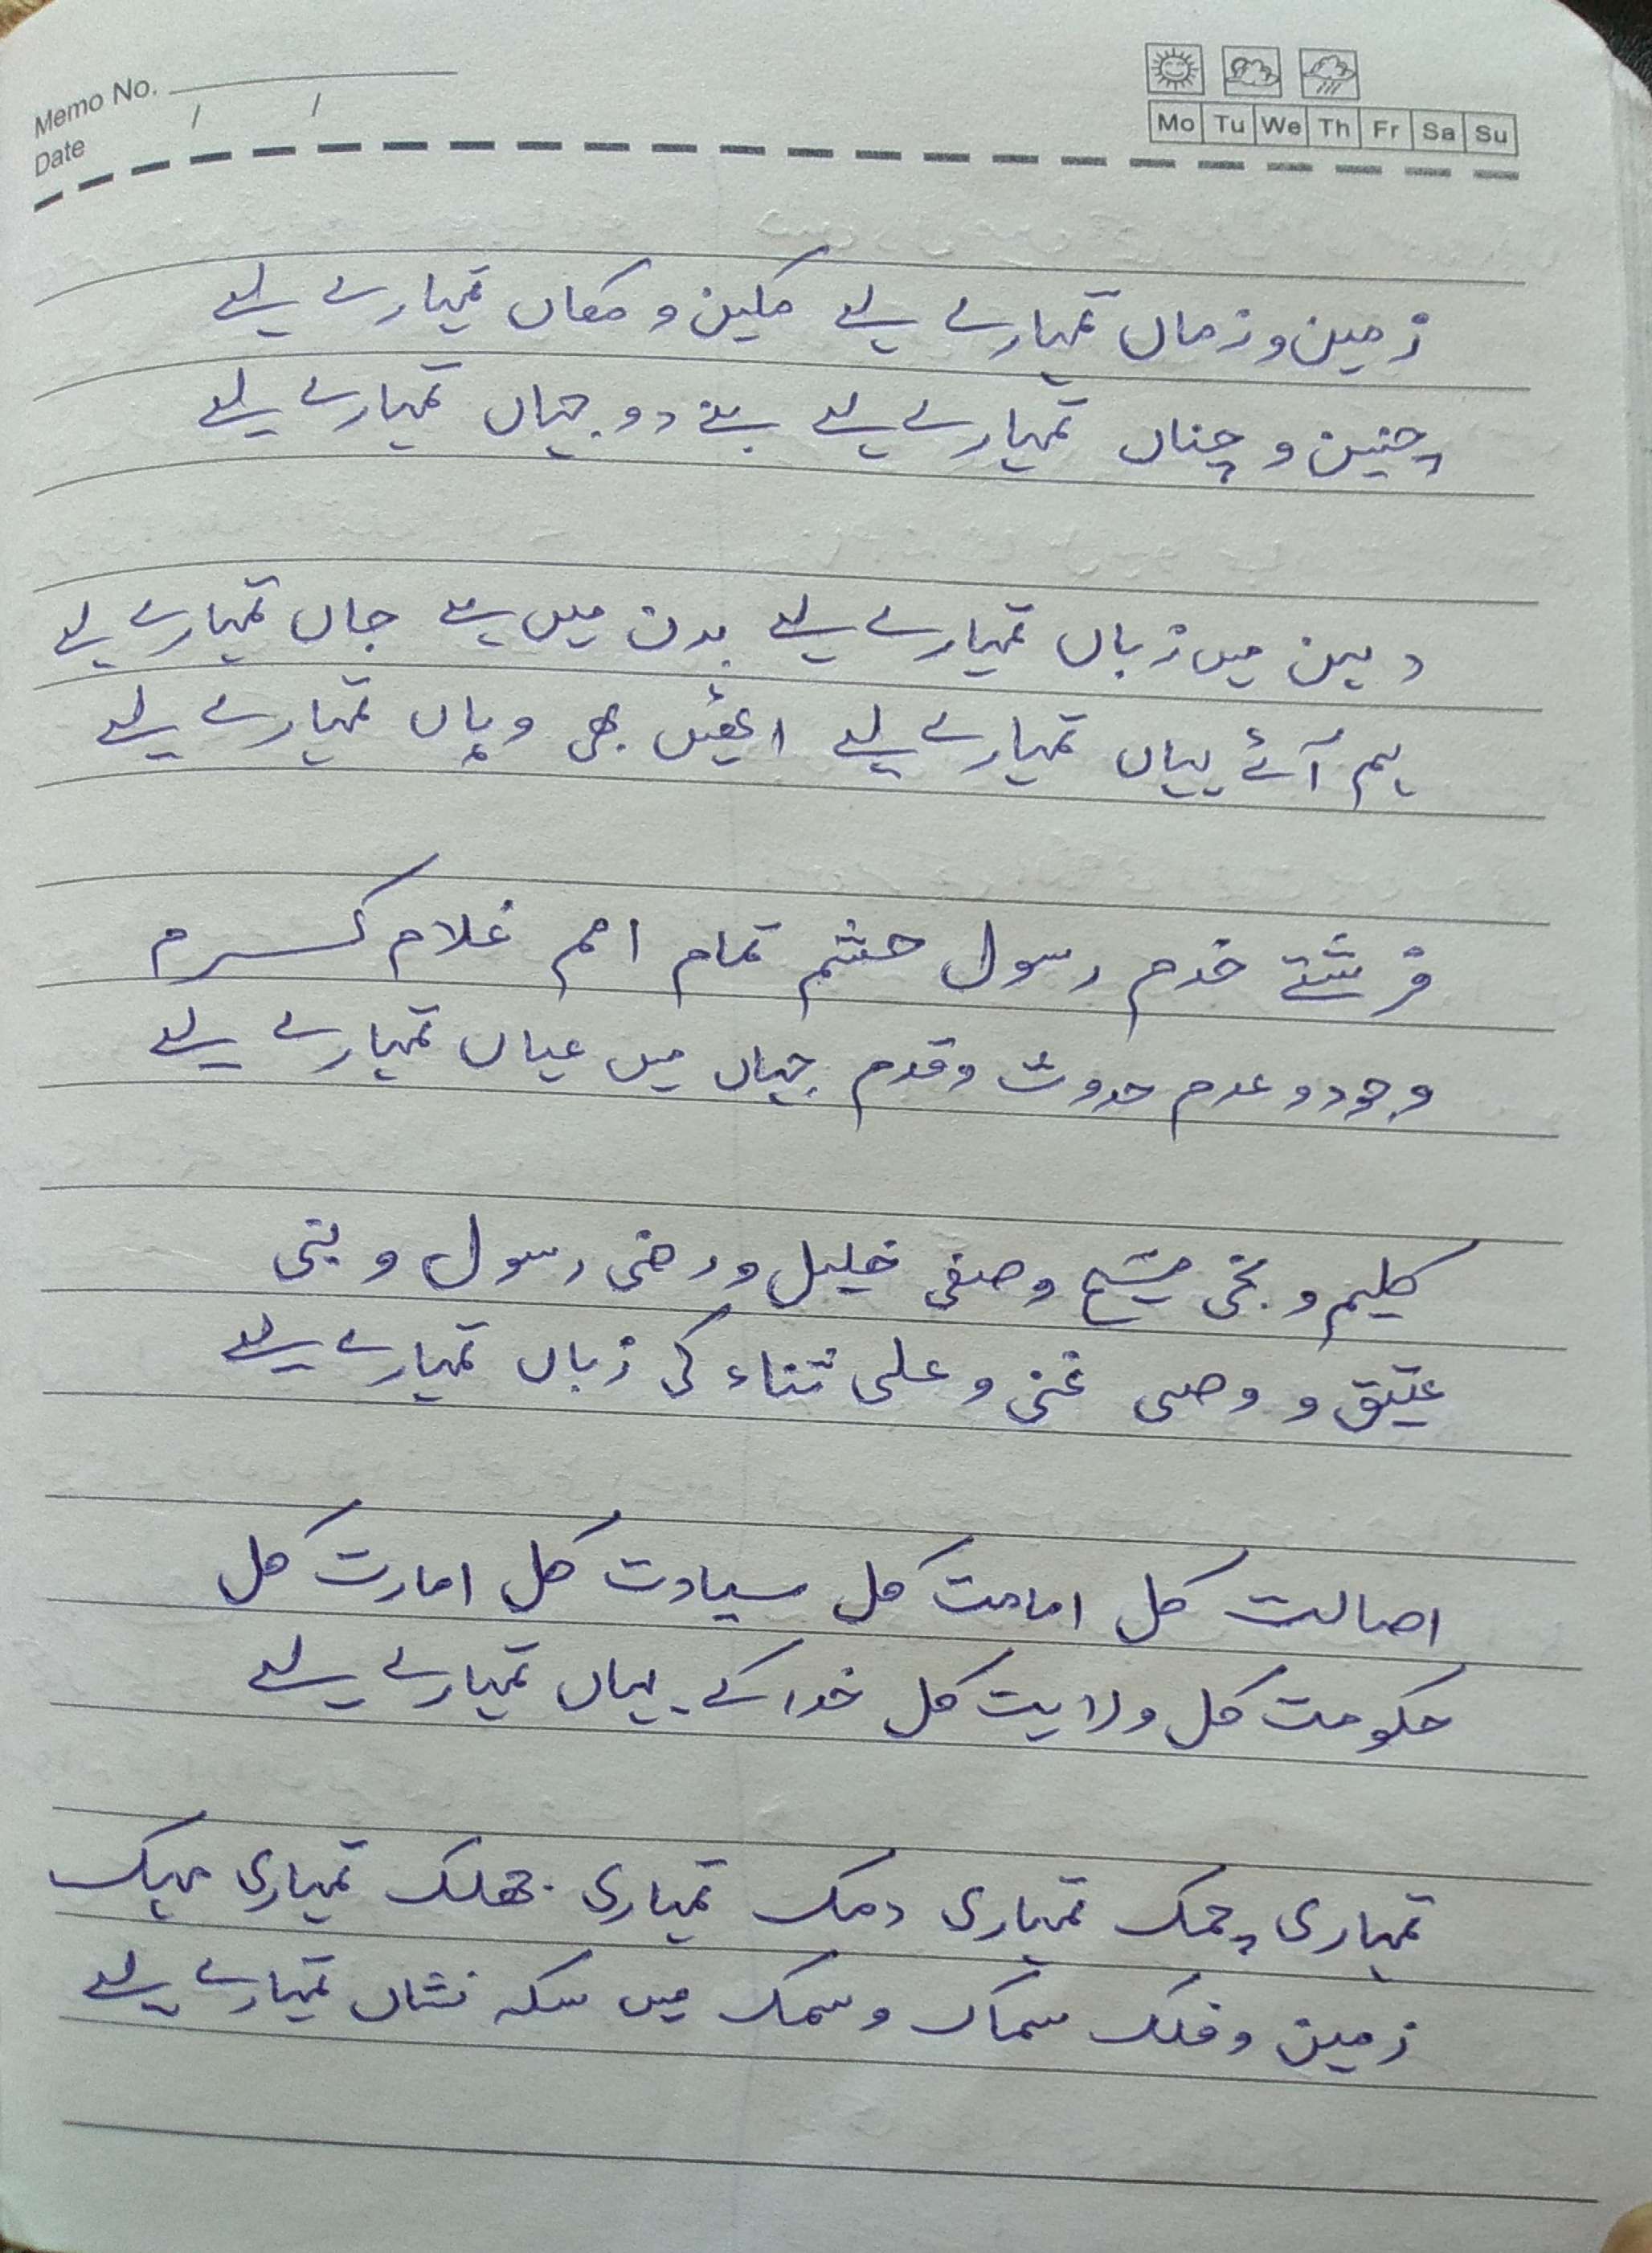 Memo No.
Date / /
Mo Tu We Th Fr Sa Su
زمین و زماں تمہارے لیے مکین و مکاں تمہارے لیے
چنین و چناں تمہارے لیے بنے دو جہاں تمہارے لیے
دہن میں زباں تمہارے لیے بدن میں ہے جاں تمہارے لیے
ہم آئے یہاں تمہارے لیے اٹھیں بھی وہاں تمہارے لیے
فرشتے خدم رسول حشم تمام امم غلام کرم
وجود و عدم حدوث و قدم جہاں میں عیاں تمہارے لیے
کلیم و نجی مسیح و صفی خلیل و رضی رسول و نبی
عتیق و وصی غنی و علی ثناء کی زباں تمہارے لیے
اصالت کل امامت کل سیادت کل امارت کل
حکومت کل ولایت کل خدا کے یہاں تمہارے لیے
تمہاری چمک تمہاری دمک تمہاری جھلک تمہاری مہک
زمین و فلک سماک و سمک میں سکہ نشاں تمہارے لیے